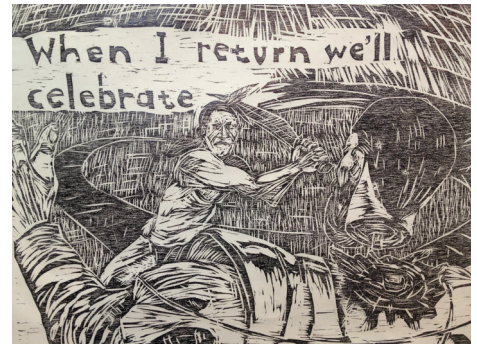 When I return we'll
celebrate